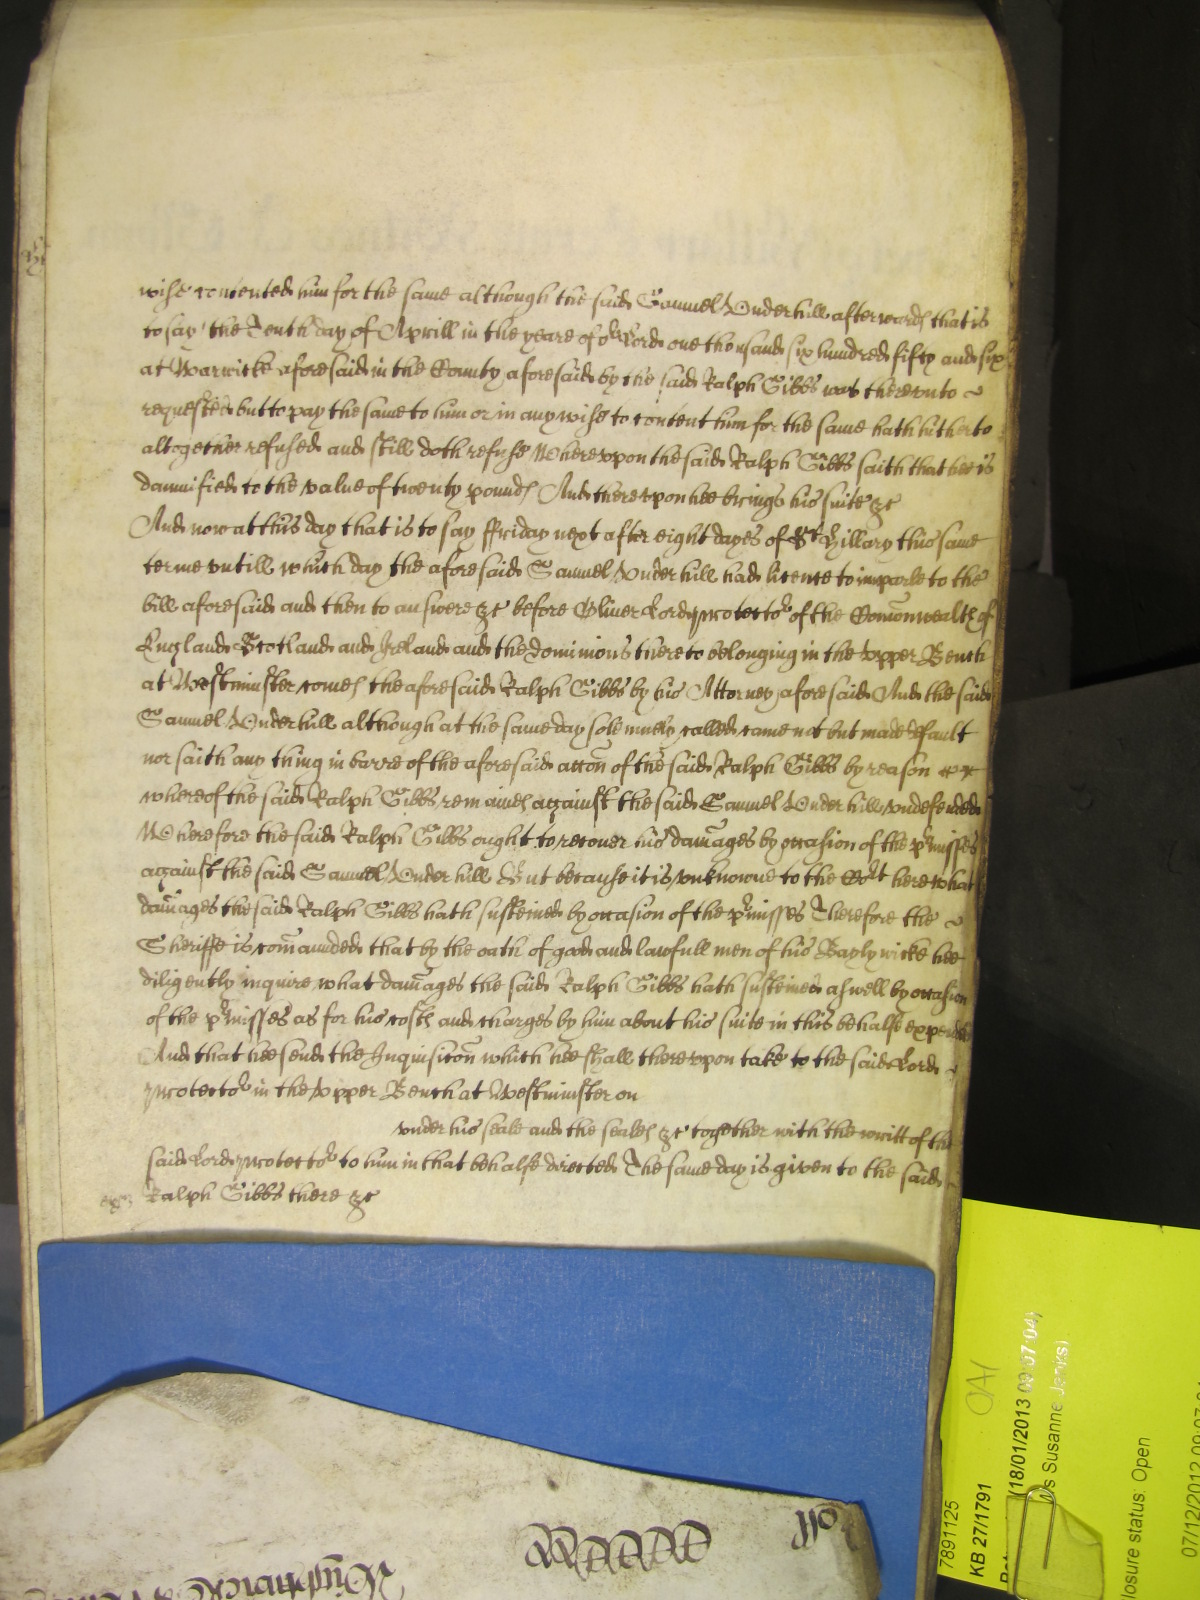 wise contented him for the same although the said Samuel Underhill afterwards that is
to say the Tenth day of Aprill in the yeare of or Lord one thousand six hundred fifty and six
at Warwicke aforesaid in the County aforesaid by the said Ralph Gibbs was therevnto
requested but to pay the same to him or in any wise to content him for the same hath hitherto
altogether refused and still doth refuse Wherevpon the said Ralph Gibbs saith that hee is
damnified to the value of twenty pounds And therevpon hee brings his suite &c
And now at this day that is to say ffriday next after eight dayes of St Hillary this same
terme vntill which day the aforesaid Samuel Vnderhill had licence to imparle to the
bill aforesaid and then to answere &c before Oliver Lord protector of the Comonwealth of
England Scotland and Ireland and the dominions thereto belonging in the vpper Bench
at Westminster comes the aforesaid Ralph Gibbs by his Attorney aforesaid And the said
Samuel Vnderhill although at the same day solemnely called came not but made default
nor saith any thing in barre of the aforesaid accon of the said Ralph Gibbs by reason
whereof the said Ralph Gibbs remaines against the said Samuel Vnderhill vndefended
Wherefore the said Ralph Gibbs ought to recouer his damages by occasion of the prmisses
against the said Samuel Vnderhill But because it is vnknowne to the Cort here what
damages the said Ralph Gibbs hath susteined by occasion of the prmisses Therefore the
Sheriffe is comanded that by the oath of good and lawfull men of his Baylywicke hee
diligently inquire what damages the said Ralph Gibbs hath susteined aswell by occasion
of the prmisses as for his costs and charges by him about his suite in this behalfe expended
And that hee send the Inquisicon which hee shall therevpon take to the said Lord
protector in the vpper Bench at Westminster on
vnder his seale and the seales &c together with the writt of the
said Lord protector to him in that behalfe directed The same day is given to the said
Ralph Gibbs there &c
7891125
KB 27/1791
(18/01/2013 09:07:04)
s Susanne Jenks)
losure status: Open